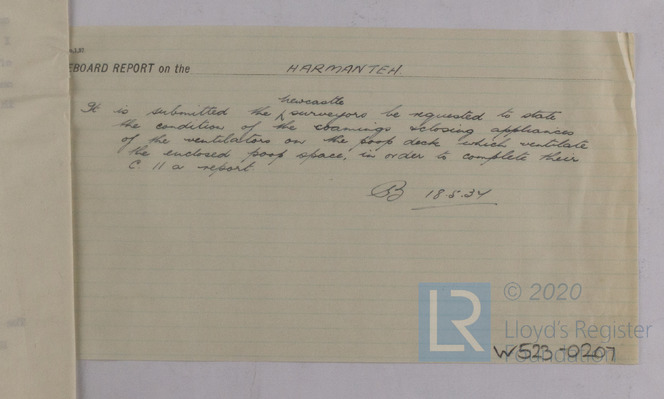 EBOARD REPORT on the HARMANTEH.
Newcastle
It is submitted the surveyors be requested to state
the condition of the coamings & closing appliances
of the ventilators on the poop deck which ventilate
the enclosed poop space, in order to complete their
C. 11 a report
18.5.34
LR
© 2020
Lloyd's Register
Foundation
W523-0207